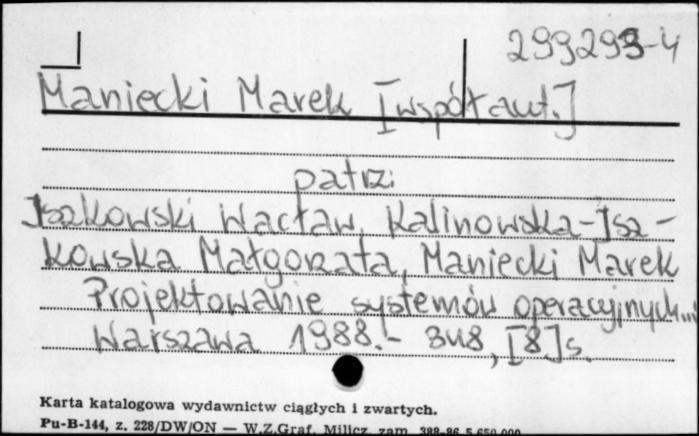 299293-4
Maniecki Marek [współaut.]
patrz:
Iszkowski Wacław, Kalinowska-Isz-
kowska Małgorzata, Maniecki Marek
Projektowanie systemów operacyjnych...
Warszawa 1988.- 348, [8]s.
Karta katalogowa wydawnictw ciągłych i zwartych.
Pu-B-144, z. 228/DW/ON — W.Z.Graf. Milicz, zam. 388-86 5.650.000